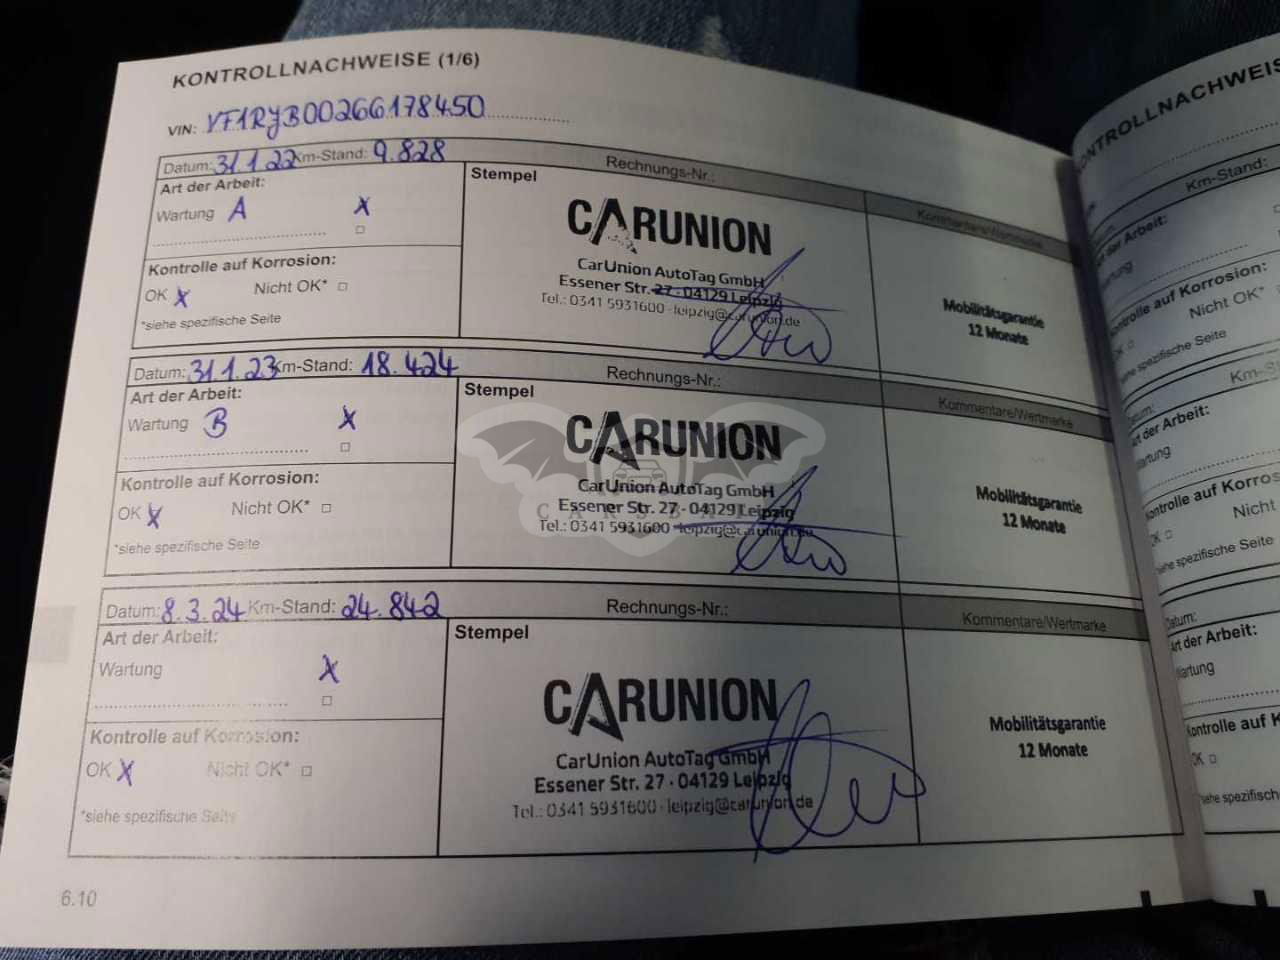 KONTROLLNACHWEISE (1/6)
VIN: VF1RJB00266178450
Datum: 31.1.22 Km-Stand: 9.828 Rechnungs-Nr.:
Art der Arbeit:
Wartung A X
Kontrolle auf Korrosion:
OK X Nicht OK* □
*siehe spezifische Seite
Stempel
CARUNION
CarUnion AutoTag GmbH
Essener Str. 27 · 04129 Leipzig
Tel.: 0341 5931600 · leipzig@carunion.de
Kommentare/Wertmarke
Mobilitätsgarantie
12 Monate
Datum: 31.1.23 Km-Stand: 18.424 Rechnungs-Nr.:
Art der Arbeit:
Wartung B X
Kontrolle auf Korrosion:
OK X Nicht OK* □
*siehe spezifische Seite
Stempel
CARUNION
CarUnion AutoTag GmbH
Essener Str. 27 · 04129 Leipzig
Tel.: 0341 5931600 · leipzig@carunion.de
Kommentare/Wertmarke
Mobilitätsgarantie
12 Monate
Datum: 8.3.24 Km-Stand: 24.842 Rechnungs-Nr.:
Art der Arbeit:
Wartung X
Kontrolle auf Korrosion:
OK X Nicht OK* □
*siehe spezifische Seite
Stempel
CARUNION
CarUnion AutoTag GmbH
Essener Str. 27 · 04129 Leipzig
Tel.: 0341 5931600 · leipzig@carunion.de
Kommentare/Wertmarke
Mobilitätsgarantie
12 Monate
6.10
KONTROLLNACHWEIS
Km-Stand:
Art der Arbeit:
Wartung
Kontrolle auf Korrosion:
OK □ Nicht OK*
*siehe spezifische Seite
Datum:
Art der Arbeit:
Wartung
Kontrolle auf Korros
OK □ Nicht
*siehe spezifische Seite
Datum:
Art der Arbeit:
Wartung
Kontrolle auf K
OK □
*siehe spezifisch